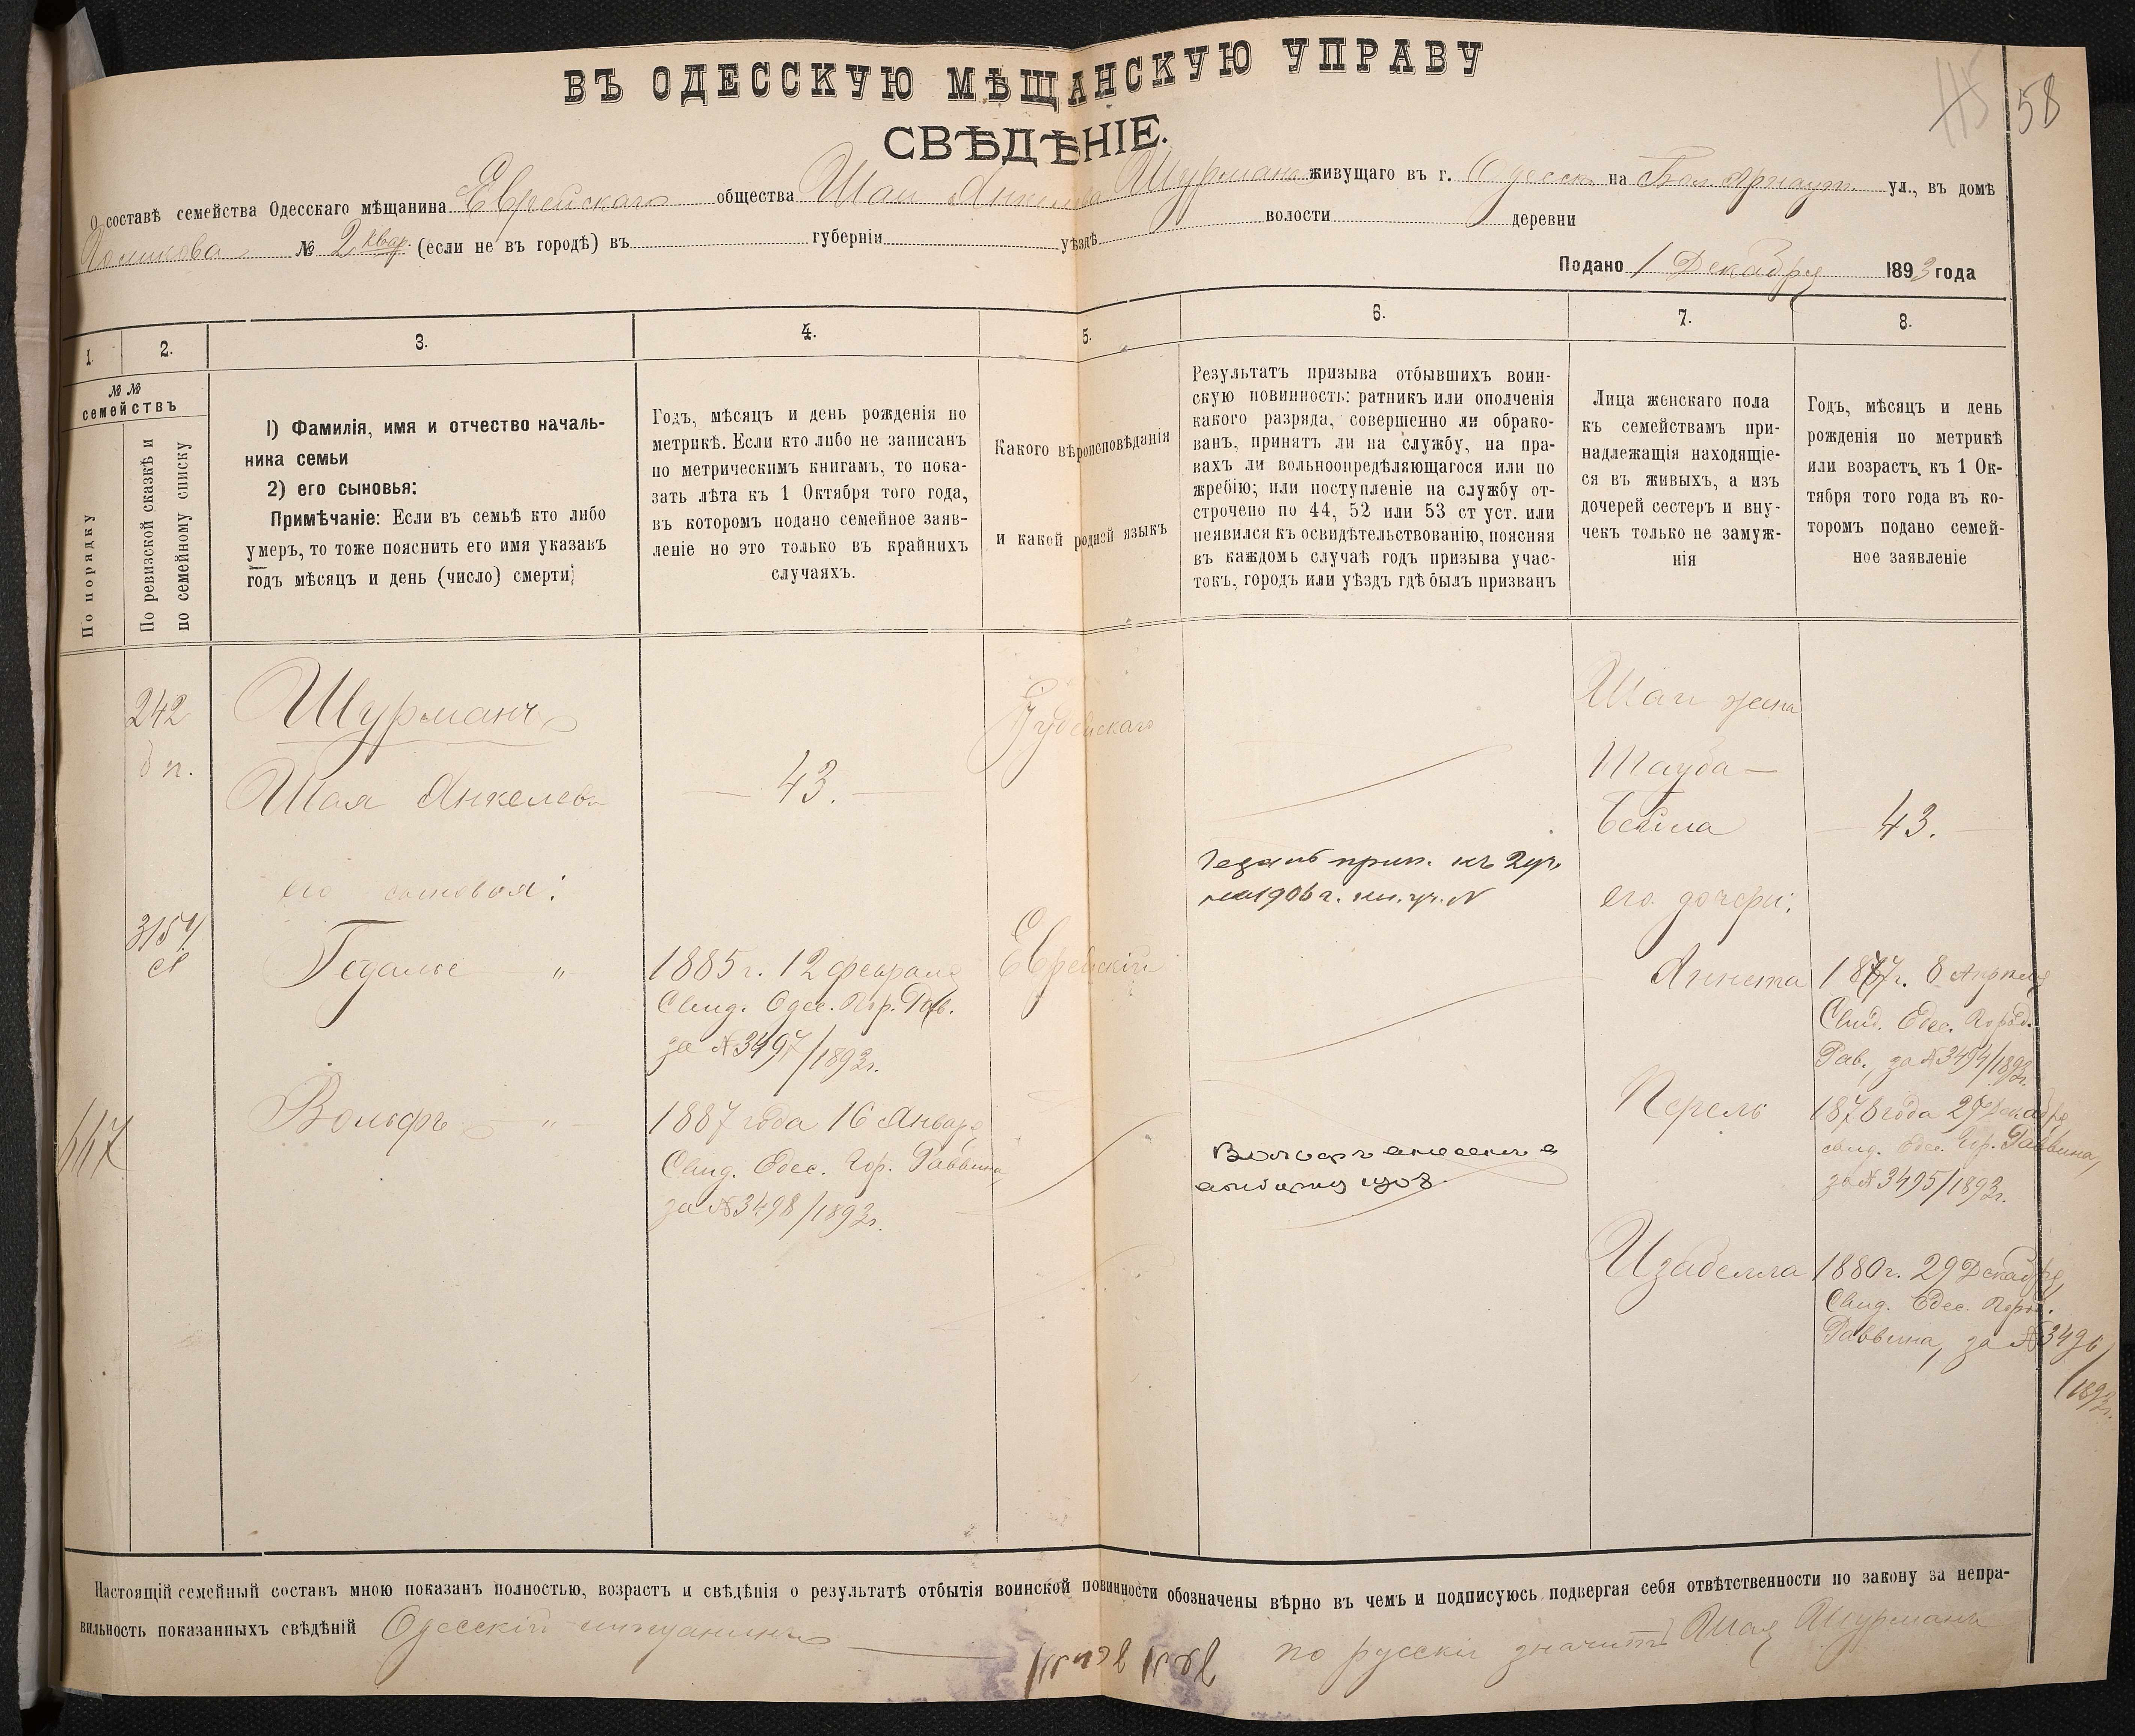 ВЪ ОДЕССКУЮ МѢЩАНСКУЮ УПРАВУ
СВѢДѢНІЕ.
115 58
О составѣ семейства Одесскаго мѣщанина Еврейскаго общества Шаи Янкелева Шурмана живущаго въ г. Одессѣ на Бол. Арнаут. ул., въ домѣ
№ 2 квар. (если не въ городѣ) въ губерніи уѣздѣ волости деревни
Подано 1 Декабря 1893 года
1. 2. 3. 4. 5. 6. 7. 8.
№ № семействъ
По порядку
По ревизской сказкѣ и
по семейному списку
1) Фамилія, имя и отчество началь-
ника семьи
2) его сыновья:
Примѣчаніе: Если въ семьѣ кто либо
умеръ, то тоже пояснить его имя указавъ
годъ мѣсяцъ и день (число) смерти;
Годъ, мѣсяцъ и день рожденія по
метрикѣ. Если кто либо не записанъ
по метрическимъ книгамъ, то пока-
зать лѣта къ 1 Октября того года,
въ которомъ подано семейное заяв-
леніе но это только въ крайнихъ
случаяхъ.
Какого вѣроисповѣданія
и какой родной языкъ
Результатъ призыва отбывшихъ воин-
скую повинность: ратникъ или ополченія
какого разряда, совершенно ли обрако-
ванъ, принятъ ли на службу, на пра-
вахъ ли вольноопредѣляющагося или по
жребію; или поступленіе на службу от-
строчено по 44, 52 или 53 ст уст. или
неявился къ освидѣтельствованію, поясняя
въ каждомъ случаѣ годъ призыва учас-
токъ, городъ или уѣздъ гдѣ былъ призванъ
Лица женскаго пола
къ семействамъ при-
надлежащія находящіе-
ся въ живыхъ, а изъ
дочерей сестеръ и вну-
чекъ только не замуж-
нія
Годъ, мѣсяцъ и день
рожденія по метрикѣ
или возрастъ къ 1 Ок-
тября того года въ ко-
торомъ подано семей-
ное заявленіе
242
Шурманъ
Іудейскаго
Шаи жена
Шая Янкелевъ
— 43. —
Тауба —
Бейла
— 43. —
его сыновья:
прип. къ 2 уч.
на 1906 г.
его дочери:
3154
Гедалье "
1885 г. 12 февраля
Свид. Одес. Гор. Рав.
за № 3497/1893 г.
Еврейскій
Аннета
1877 г. 8 Апреля
Свид. Одес. Город.
Рав., за № 3494/1893 г.
447
Вольфъ — " —
1887 года 16 Января
Свид. Одес. Гор. Раввина,
за № 3498/1893 г.
Вольфъ внесенъ в
1908.
Перель
1878 года 29 Декабря
свид. Одес. Гор. Раввина,
за № 3495/1893 г.
Изабелла
1880 г. 29 Декабря,
Свид. Одес. Город.
Раввина, за № 3496/
/1893 г.
Настоящій семейный составъ мною показанъ полностью, возрастъ и свѣдѣнія о результатѣ отбытія воинской повинности обозначены вѣрно въ чемъ и подписуюсь подвергая себя отвѣтственности по закону за непра-
вильность показанныхъ свѣдѣній Одесскій мещанинъ по русски значитъ Шая Шурманъ